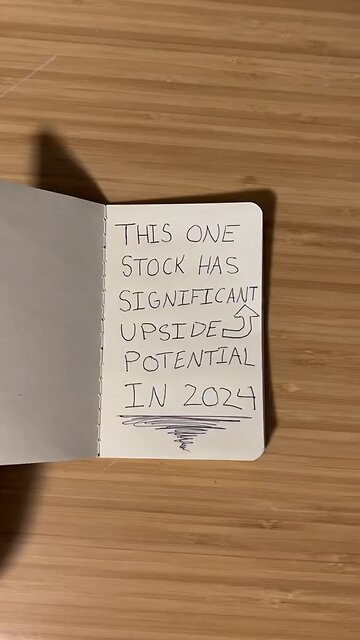 THIS ONE
STOCK HAS
SIGNIFICANT
UPSIDE
POTENTIAL
IN 2024